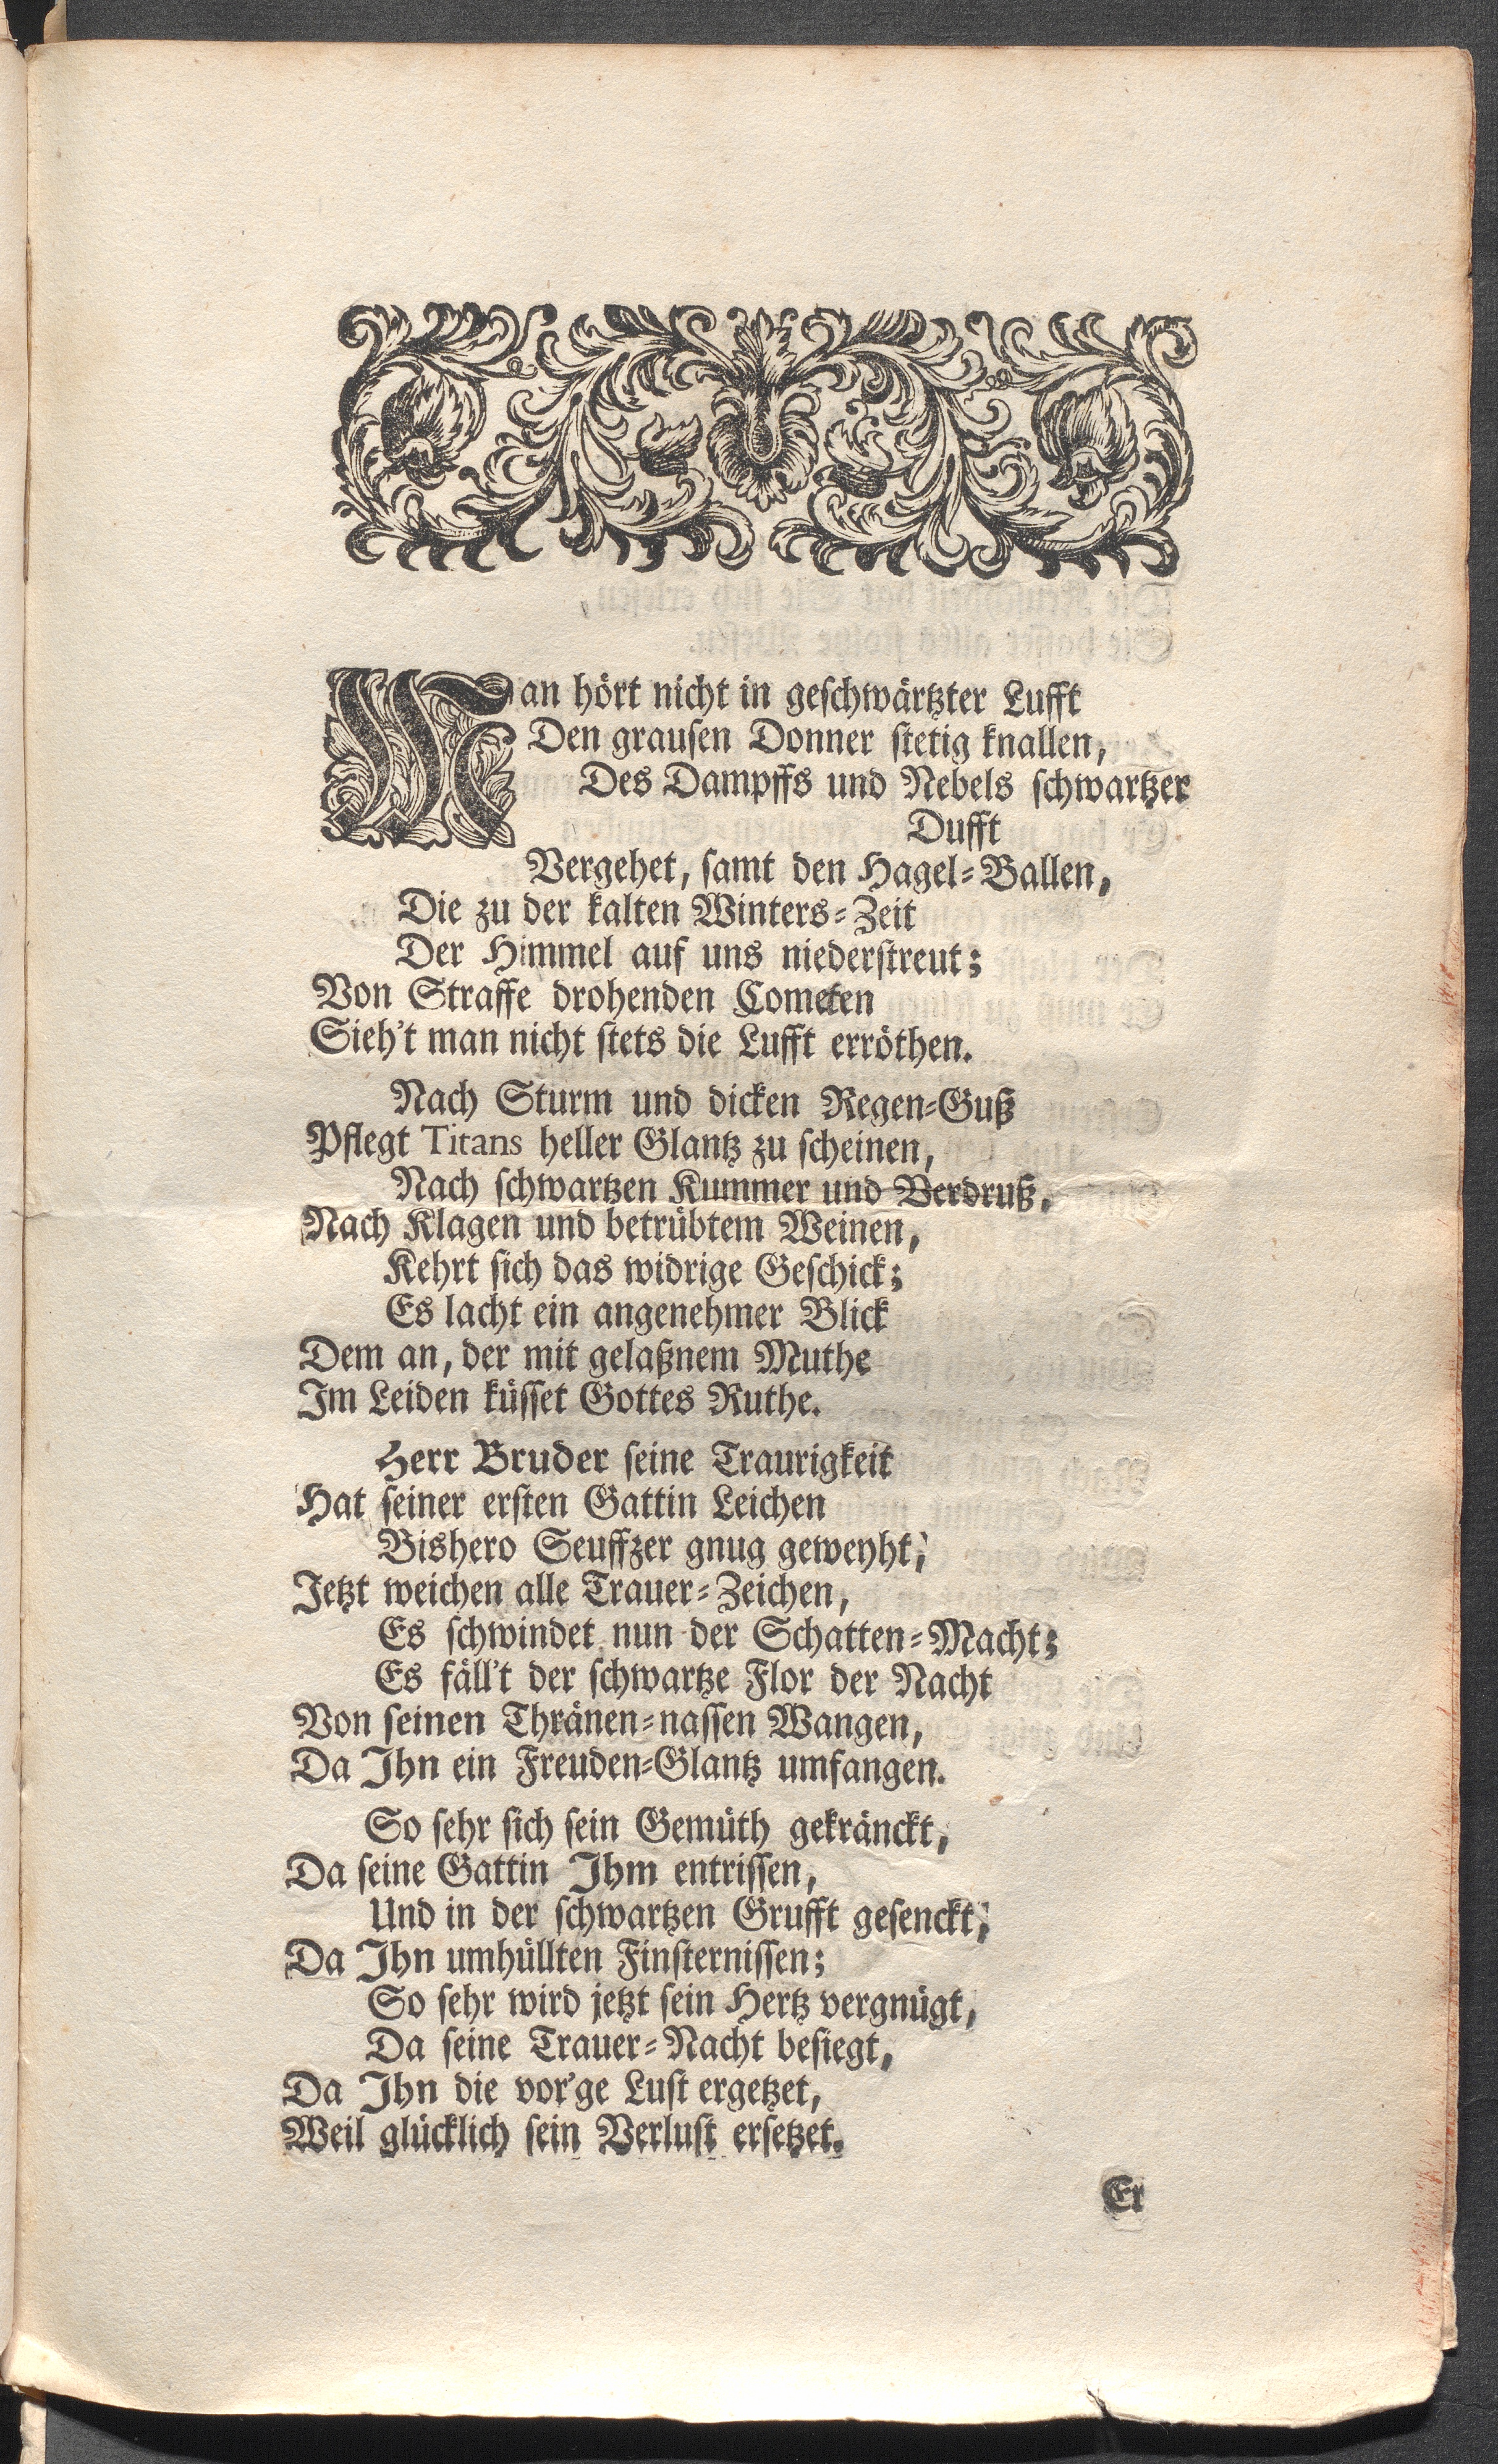 Man hört nicht in geschwärtzter Lufft
Den grausen Donner stetig knallen,
Des Dampffs und Nebels schwartzer
Dufft
Vergehet, samt den Hagel-Ballen,
Die zu der kalten Winters-Zeit
Der Himmel auf uns niederstreut;
Von Straffe drohenden Cometen
Sieh't man nicht stets die Lufft erröthen.
Nach Sturm und dicken Regen-Guß
Pflegt Titans heller Glantz zu scheinen,
Nach schwartzen Kummer und Verdruß,
Nach Klagen und betrübtem Weinen,
Kehrt sich das widrige Geschick;
Es lacht ein angenehmer Blick
Dem an, der mit gelaßnem Muthe
Im Leiden küsset Gottes Ruthe.
Herr Bruder seine Traurigkeit
Hat seiner ersten Gattin Leichen
Bishero Seuffzer gnug geweyht;
Jetzt weichen alle Trauer-Zeichen,
Es schwindet nun der Schatten-Macht;
Es fäll't der schwartze Flor der Nacht
Von seinen Thränen-nassen Wangen,
Da Ihn ein Freuden-Glantz umfangen.
So sehr sich sein Gemüth gekränckt,
Da seine Gattin Ihm entrissen,
Und in der schwartzen Grufft gesenckt;
Da Ihn umhüllten Finsternissen;
So sehr wird jetzt sein Hertz vergnügt,
Da seine Trauer-Nacht besiegt,
Da Ihn die vor'ge Lust ergetzet,
Weil glücklich sein Verlust ersetzet.
Er